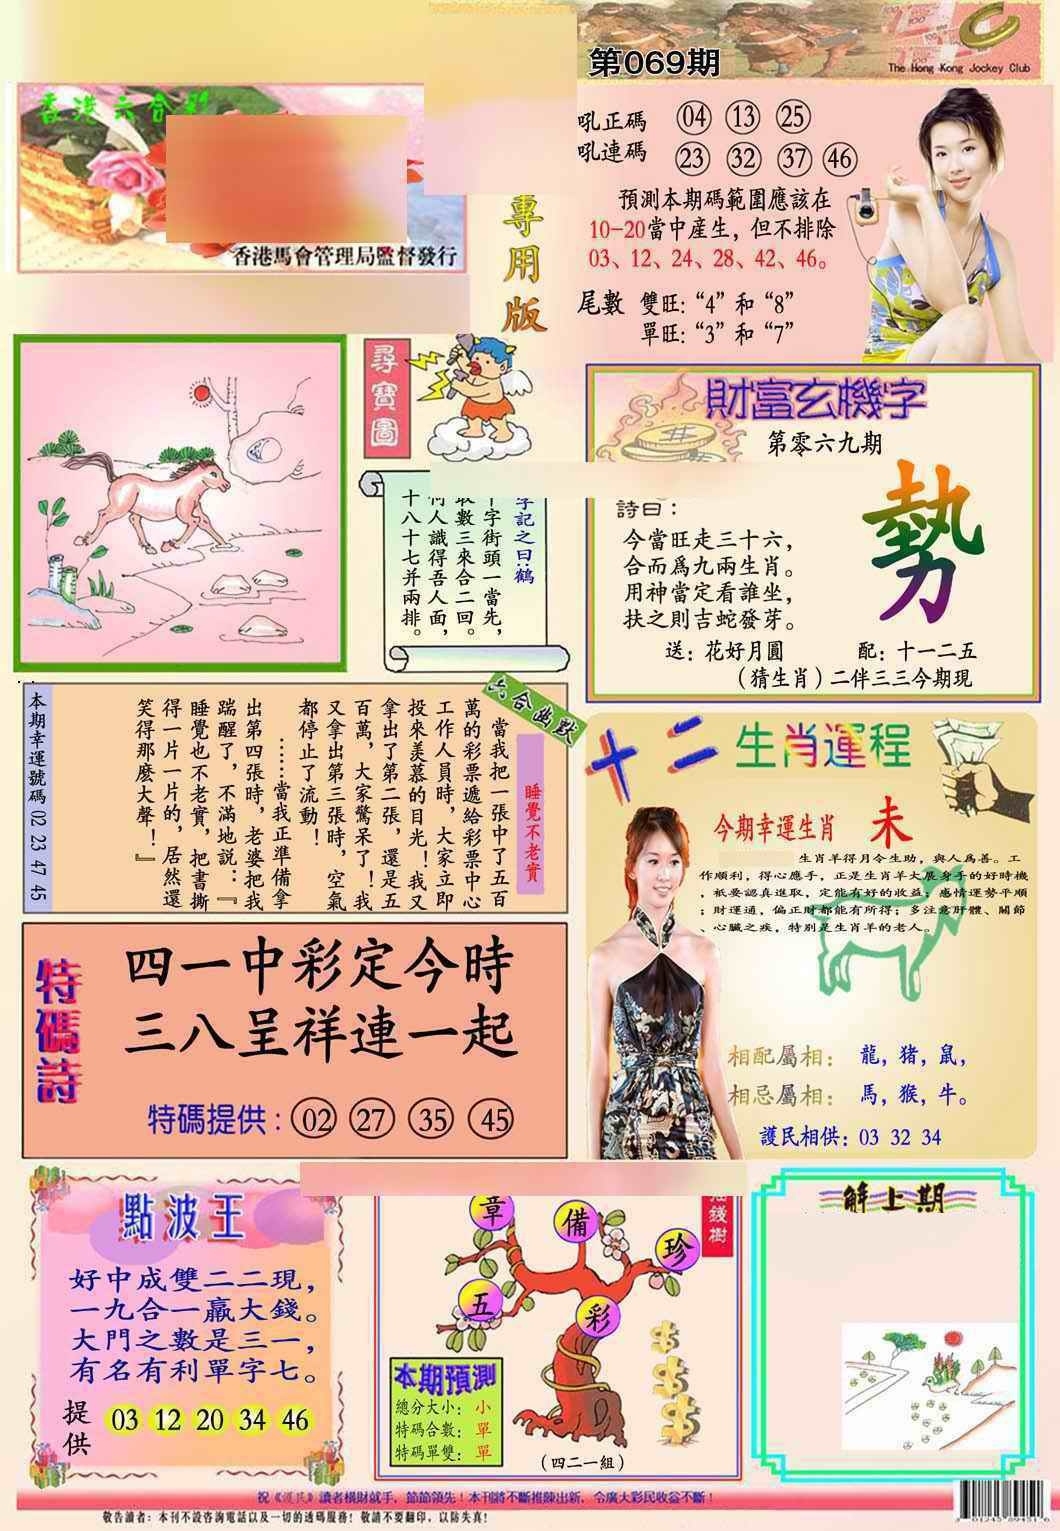 第069期
The Hong Kong Jockey Club
香港六合彩
香港馬會管理局監督發行
專用版
吼正碼 04 13 25
吼連碼 23 32 37 46
預測本期碼範圍應該在
10-20當中産生，但不排除
03、12、24、28、42、46。
尾數 雙旺：“4”和“8”
單旺：“3”和“7”
尋寶圖
字記之曰：鶴
十字街頭一當先，
取數三來合二回。
何人識得吾人面，
十八十七并兩排。
財富玄機字
第零六九期
勢
詩曰：
今當旺走三十六，
合而爲九兩生肖。
用神當定看誰坐，
扶之則吉蛇發芽。
送：花好月圓 配：十一二五
（猜生肖）二伴三三今期現
六合幽默
睡覺不老實
當我把一張中了五百
萬的彩票遞給彩票中心
工作人員時，大家立即
投來羡慕的目光！我又
拿出了第二張，還是五
百萬，大家驚呆了！我
又拿出第三張時，空氣
都停止了流動！
……當我正準備拿
出第四張時，老婆把我
踹醒了，不滿地説：『
睡覺也不老實，把書撕
得一片一片的，居然還
笑得那麼大聲！』
本期幸運號碼 02 23 47 45
十二生肖運程
今期幸運生肖 未
生肖羊得月令生助，與人爲善。工
作順利，得心應手，正是生肖羊大展身手的好時機
，衹要認真進取，定能有好的收益；感情運勢平順
；財運通，偏正財都能有所得；多注意肝體、關節
、心臟之疾，特別是生肖羊的老人。
相配屬相：龍，猪，鼠，
相忌屬相：馬，猴，牛。
護民相供：03 32 34
特碼詩
四一中彩定今時
三八呈祥連一起
特碼提供：02 27 35 45
點波王
好中成雙二二現，
一九合一贏大錢。
大門之數是三一，
有名有利單字七。
提供 03 12 20 34 46
錢樹
章
備
珍
五
彩
本期預測
總分大小：小
特碼合數：單
特碼單雙：單
（四二一組）
解上期
祝《護民》讀者橫財就手，節節領先！本刊將不斷推陳出新，令廣大彩民收益不斷！
敬告讀者：本刊不設咨詢電話以及一切的透碼服務！敬請不要翻印，以防失真！